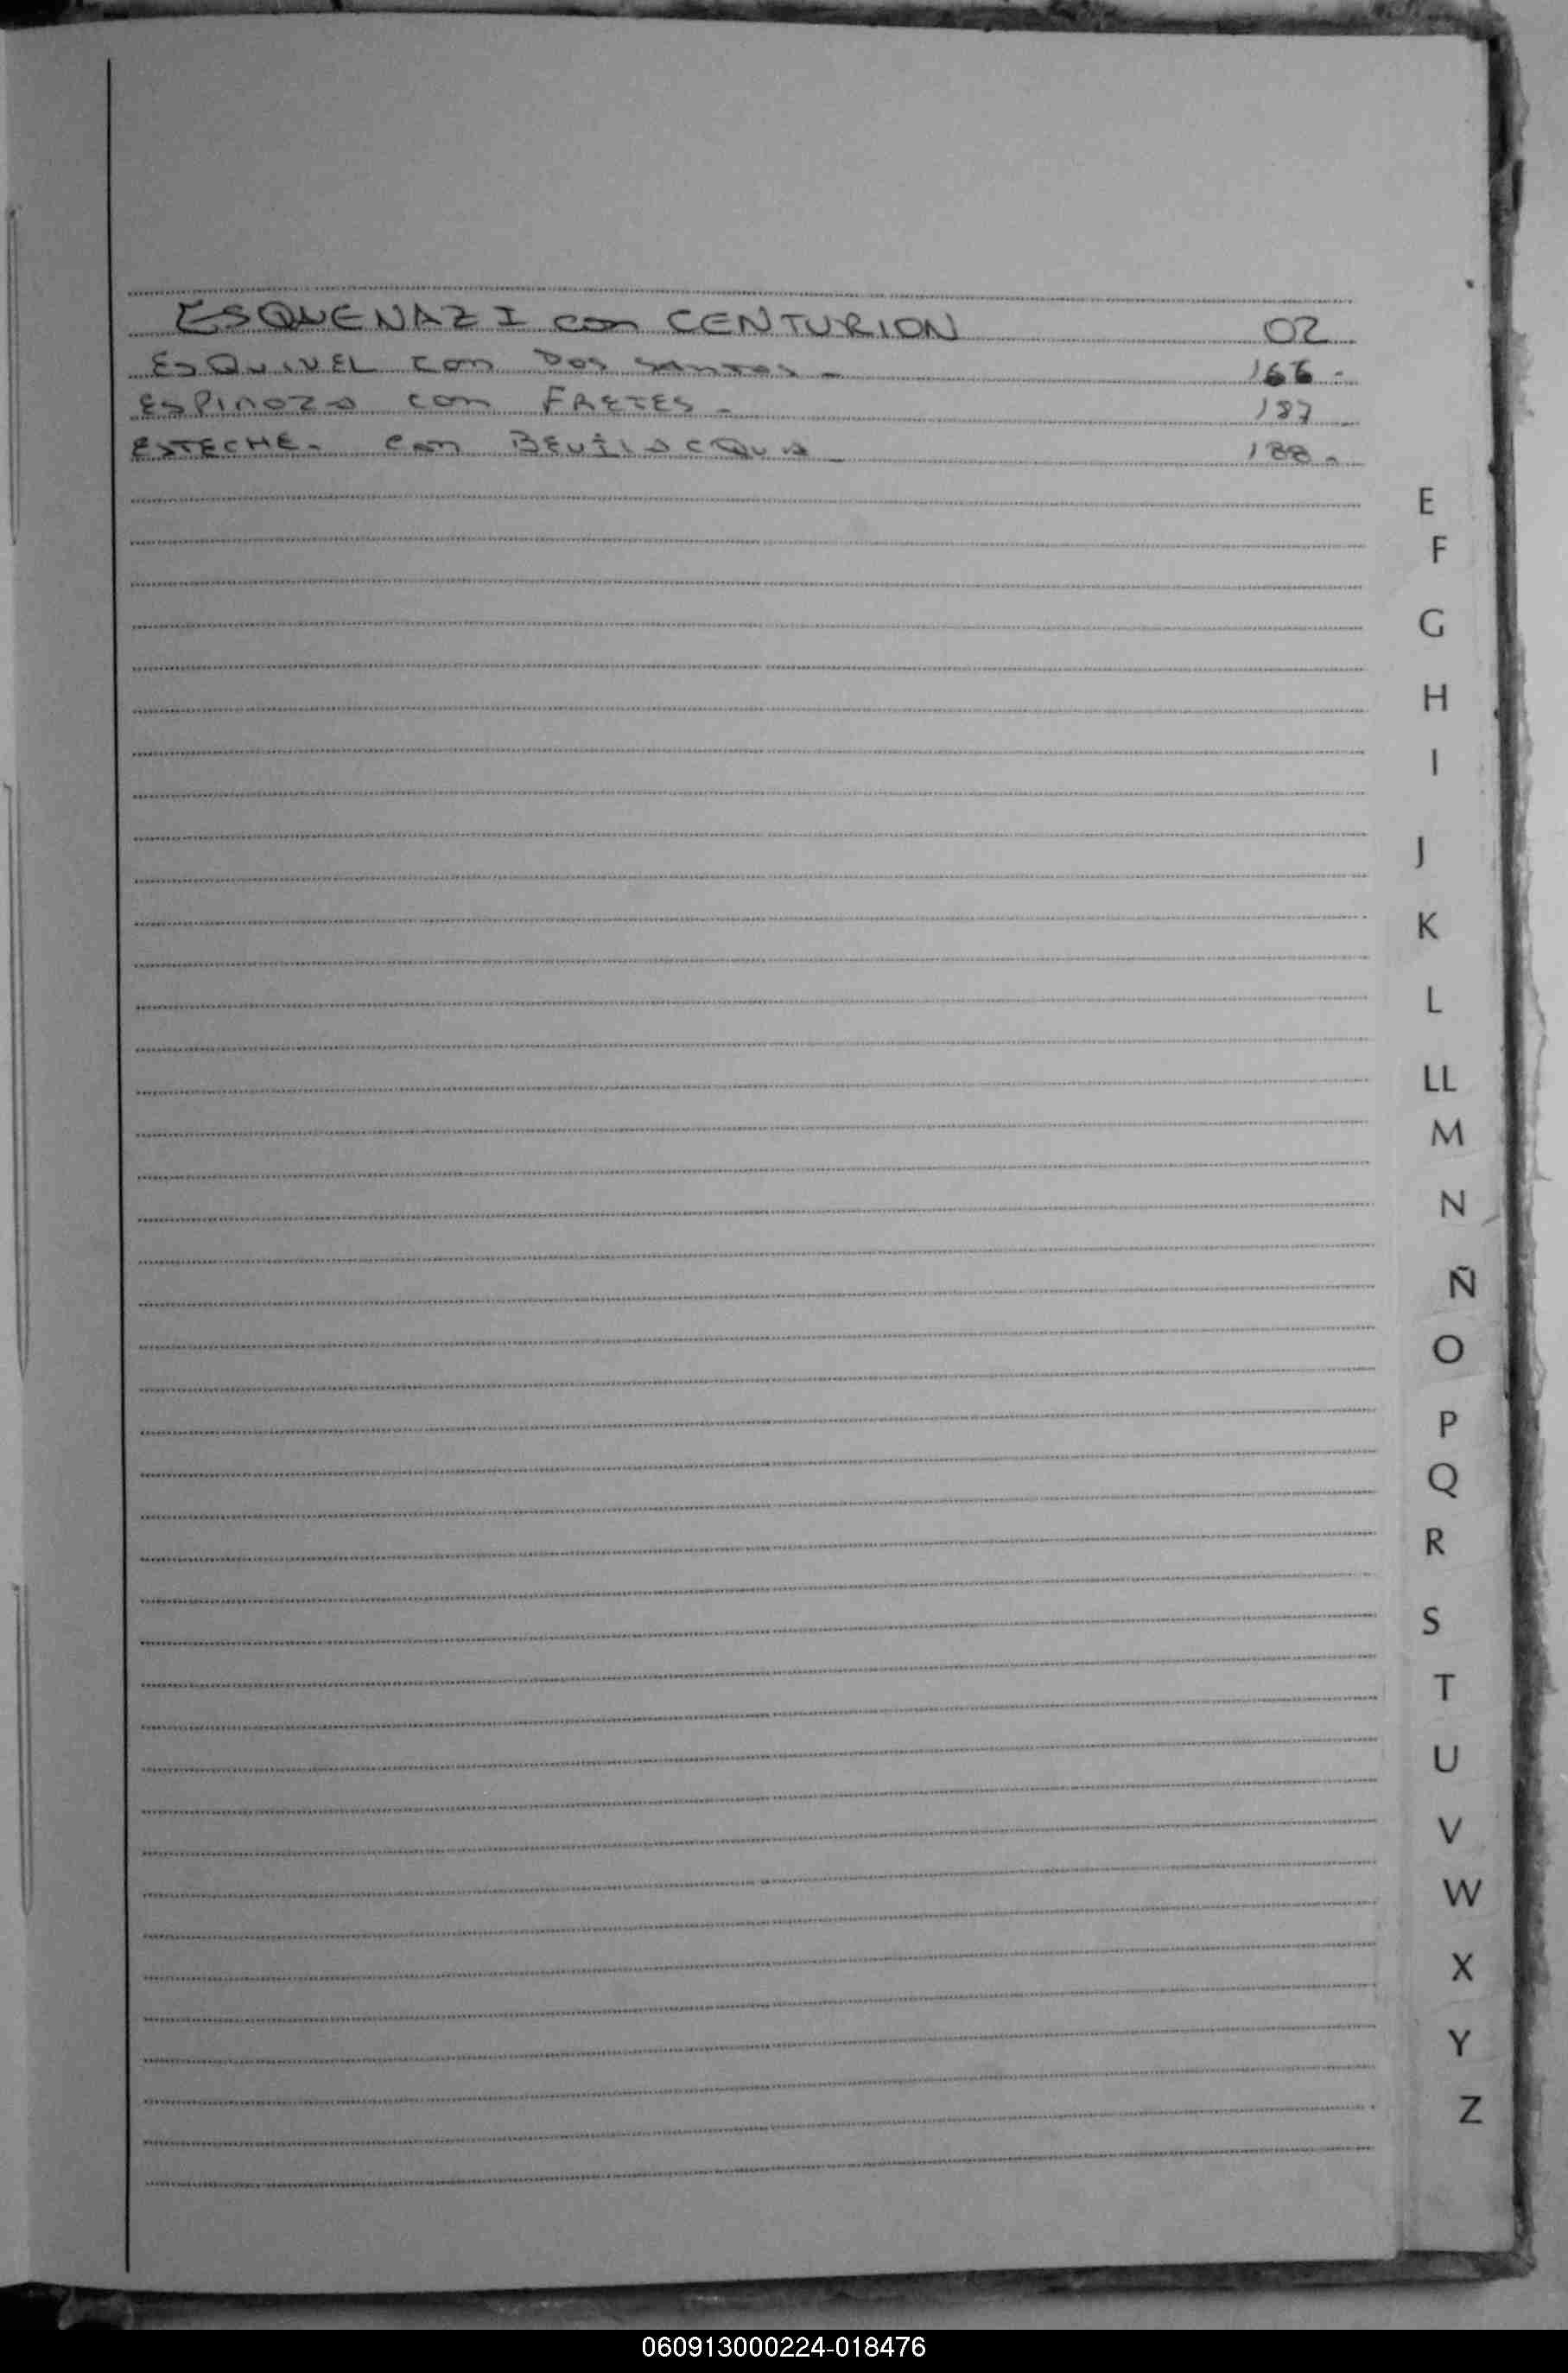 ESQUENAZI con CENTURION 02
ESQUIVEL con Dos SANTOS - 166 -
ESPINOZA con FRETES - 187
ESTECHE - con BEVILACQUA - 188 -
E
F
G
H
I
J
K
L
LL
M
N
Ñ
O
P
Q
R
S
T
U
V
W
X
Y
Z
060913000224-018476